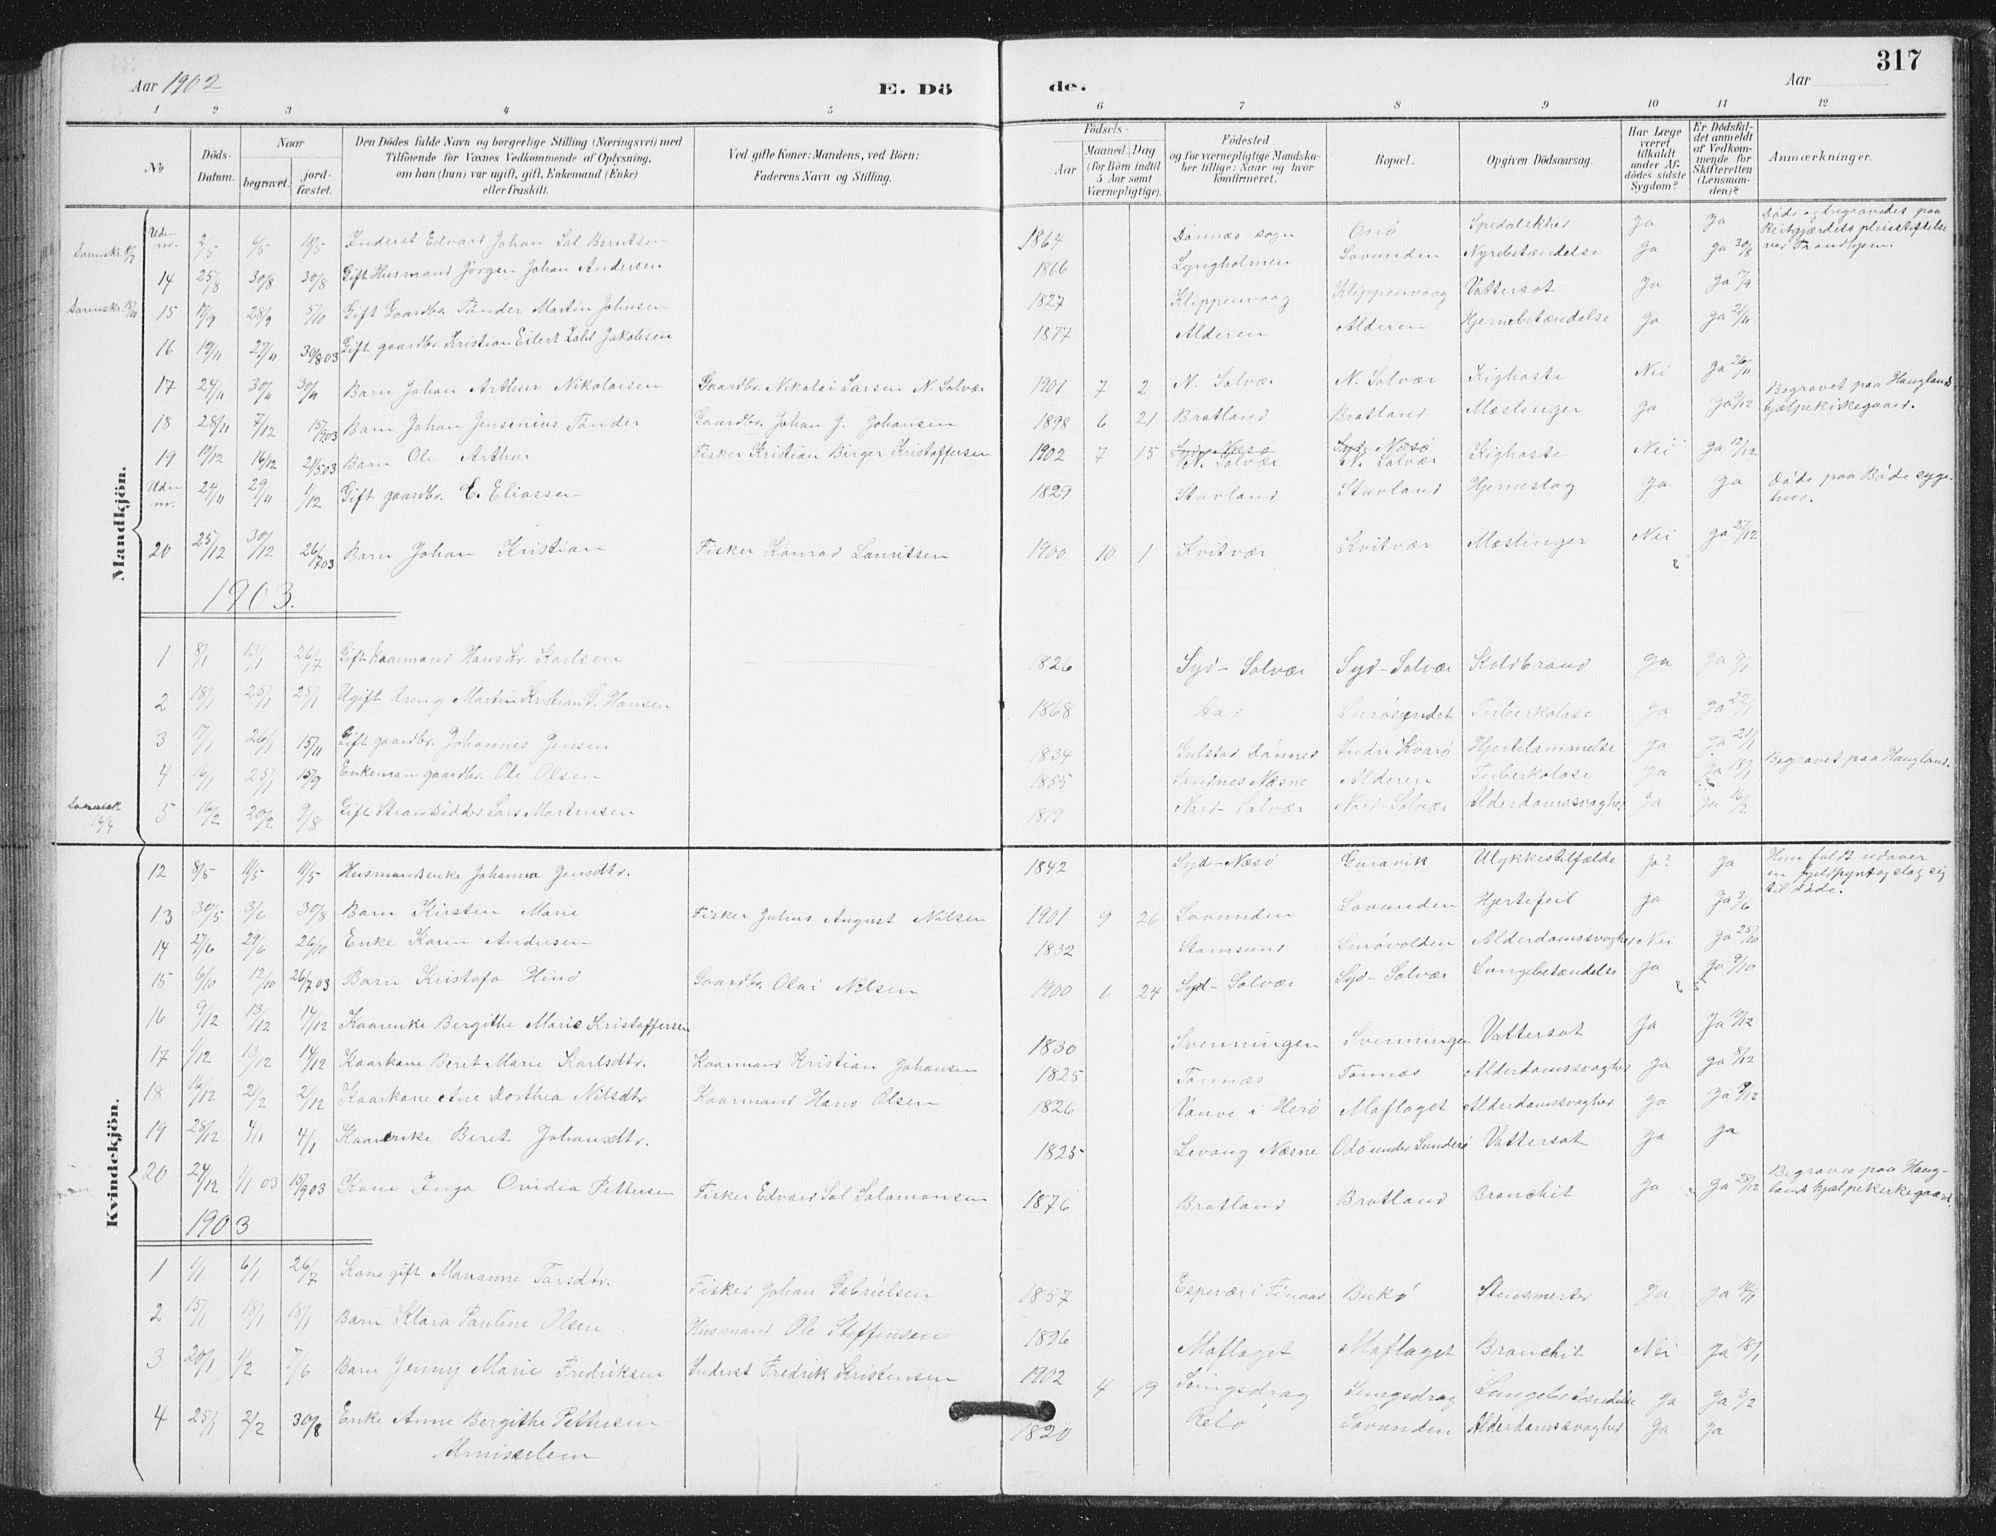 317
Aar 1902
E. Dö
de.
Aar
1 2 3 4 5 6 7 8 9 10 11 12
No
Döds-Datum.
Naar
begravet.
jord-fæstet.
Den Dödes fulde Navn og borgerlige Stilling (Næringsvei) med
Tilföiende for Voxnes Vedkommende af Oplysning,
om han (hun) var ugift, gift, Enkemand (Enke)
eller fraskilt.
Ved gifte Koner: Mandens, ved Börn:
Faderens Navn og Stilling.
Födsels-
Aar
Maaned. Dag.
(for Börn indtil
5 Aar samt
Værnepligtige).
Födested
og for værnepligtige Mandska-
ber tillige: Naar og hvor
konfirmeret.
Bopæl.
Opgiven Dödsaarsag.
Har Læge
været
tilkaldt
under Af-
dödes sidste
Sygdom?
Er Dödsfal-
det anmeldt
af Vedkom-
mende for
Skifteretten
(Lensman-
den)?
Anmærkninger.
Mandkjön.
Uden nr. 2/5 6/5 Inderst Edvard Johan Sal Berntsen 1864 Dønnæs sogn Onø Spedalskhed Ja Ja Døde og begravedes paa Reitgjærdets pleiestiftelse ved Trondhjem.
14 25/8 30/8 30/8 Gift Husmand Jørgen Johan Andersen 1866 Lyngholmen Lovunden Nyrebetændelse Ja Ja 30/8
15 17/9 28/9 5/10 Gift Gaardbr. Tønder Martin Johnsen 1827 Klippenvaag Klippenvaag Vattersot Ja Ja
16 19/11 27/11 30/8 03 Gift gaardbr. Kristian Eilert Dahl Jakobsen 1877 Alderen Alderen Hjernebetændelse Ja Ja 21/11
17 24/11 30/11 30/11 Barn Johan Arthur Nikolaisen Gaardbr. Nikolai Larsen N. Solvær 1901 7 2 N. Solvær N. Solvær Kighoste Nei Ja 26/11
18 28/11 7/12 15/9 03 Barn Johan Jensenius Tønder Gaardbr. Johan J. Johansen 1898 6 21 Bratland Bratland Mæslinger Ja Ja Begravet paa Hauglands hjælpekirkegaard.
19 10/12 16/12 21/5 03 Barn Ole Arthur Fisker Kristian Birger Kristoffersen 1902 7 15 Syd-Næsø N. Solvær Syd-Næsø N. Solvær Kighoste Nei Ja 12/12
Uden nr. 24/11 29/11 1/12 Gift gaardbr. E. Eliassen 1829 Stuvland Stuvland Hjerneslag Ja Ja Døde paa Bodø sygehus.
20 25/12 30/12 26/7 03 Barn Johan Kristian Fisker Konrad Lauritsen 1900 10 1 Kvitvær Kvitvær Mæslinger Nei Ja 27/12
1903.
1 8/1 13/1 26/7 Gift kaarmand Hans Kr. Karlsen 1826 Syd-Solvær Syd-Solvær Koldbrand Ja Ja 9/1
2 18/1 25/1 25/1 Ugift dreng Martin Kristian P. Hansen 1868 Aas Lurøsundet Tuberkolose Ja Ja 22/1
3 17/1 26/1 15/11 Gift gaardbr. Johannes Jensen 1834 Dønnes Indre Kvarø Hjertelammelse Ja Ja 21/1
4 16/1 25/1 15/9 Enkeman gaardbr. Ole Olsen 1855 Sandnes Næsne Alderen Tuberkolose Ja Ja 18/1 Begravet paa Haugland.
5 16/2 20/2 9/8 Gift Strandsidder Lars Mortensen 1819 Nord-Solvær Nord-Solvær Alderdomssvaghed Ja Ja 16/2
Kvindekjön.
12 8/5 11/5 11/5 Husmandsenke Johanna Jensdtr. 1842 Syd-Næsø Guravik Ulykkestilfælde Ja? Ja Hun faldt udover en fjeldpynt og slog sig til døde.
13 30/5 3/6 30/8 Barn Kirsten Marie Fisker Julius August Nilsen 1901 9 26 Lovunden Lovunden Hjertefeil Ja Ja 3/6
14 27/6 29/6 26/10 Enke Karen Andersen 1832 Stamsund Lurøvolden Alderdomssvaghed Nei Ja 25/10
15 6/10 12/10 26/7 03 Barn Kristofa Hind Gaardbr. Olai Nilsen 1900 6 24 Syd-Solvær Syd-Solvær Lungebetændelse Ja Ja 9/10
16 9/12 13/12 14/12 Kaarenke Bergithe Marie Kristoffersen 1830 Svenningen Svenningen Vattersot Ja Ja 10/12
17 1/12 13/12 14/12 Kaarkone Beret Marie Karlsdtr. Kaarmand Kristian Johansen 1825 Tonnæs Tonnæs Alderdomssvaghed Ja Ja 8/12
18 16/12 21/2 2/12 Kaarkone Ane Dorthea Nilsdtr Kaarmand Hans Olsen 1826 Vanve i Herø Moflaget Alderdomssvaghed Ja Ja
19 28/12 4/1 4/1 Kaarenke Beret Johansdtr. 1825 Levang Næsne Odø under Lunderø Vattersot Ja Ja
20 24/12 1/1 03 15/9 03 Kone Inga Ovidia Pettersen Fisker Edvard Sal Salamonsen 1876 Bratland Bratland Bronchit Ja Ja 28/12 Begraves paa Hauglands hjælpekirkegaard.
1903
1 1/1 6/1 26/7 Kone gift Marianne Larsdtr. Fisker Johan Gabrielsen 1857 Espevær i Finaas Bukø Ja Ja
2 15/1 18/1 18/1 Barn Klara Pauline Olsen Husmand Ole Steffensen 1896 Moflaget Moflaget Bronchit Nei Ja 18/1
3 20/1 1/2 7/6 Barn Jenny Marie Fredriksen Inderst Fredrik Kristensen 1902 4 19 Lungsdrag Lungsdrag Lungebetændelse Ja Ja 3/2
4 25/1 2/2 30/8 Enke Anne Bergithe Pettersen 1820 Relø Lovunden Alderdomssvaghed Ja Ja
Almisselem